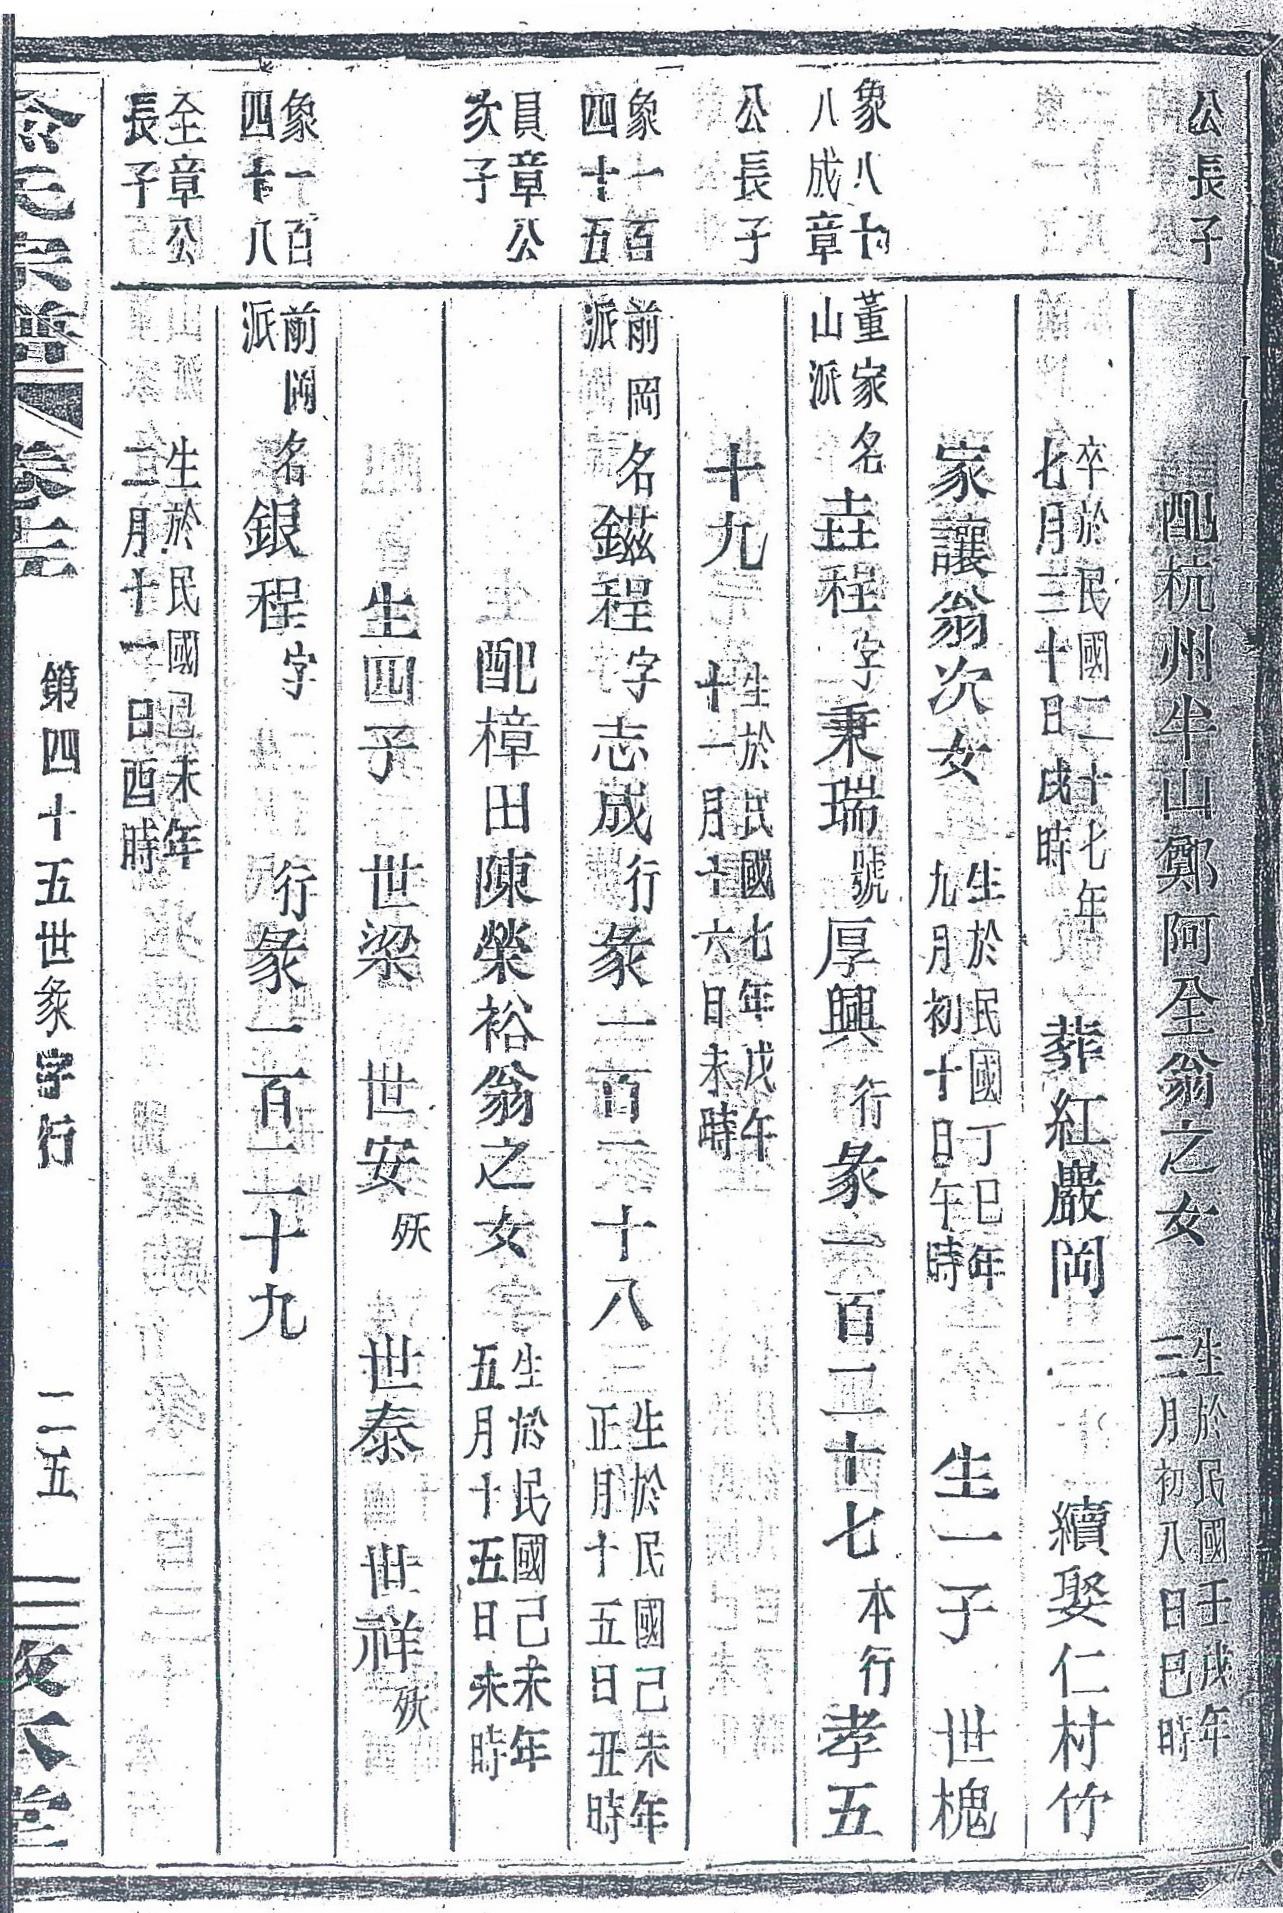 公長子
配杭州半山鄭阿全翁之女
生於民國壬戌年
三月初八日巳時
卒於民國二十七年
七月三十日戌時
葬紅巖岡
續娶仁村竹
家讓翁次女
生於民國丁巳年
九月初十日午時
生一子 世槐
象八十
八成章
董家
山派
名垚程字秉瑞號厚興行彖一百二十七本行孝五
公長子
十九
生於民國七年戊午
十一月十六日未時
象一百
四十五
前岡
派
名鎡程字志成行彖一百二十八
生於民國己未年
正月十五日丑時
員章公
次子
配樟田陳榮裕翁之女
生於民國己未年
五月十五日未時
生四子 世梁 世安殀 世泰 世祥殀
象一百
四十八
前岡
派
名銀程字 行彖一百二十九
全章公
長子
生於民國己未年
二月十一日酉時
氏宗譜
第四十五世彖字行
一二五